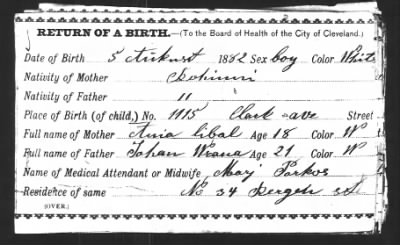 RETURN OF A BIRTH.—(To the Board of Health of the City of Cleveland.)
Date of Birth 5 Aukust 1882 Sex boy Color White
Nativity of Mother Bohimi
Nativity of Father 11
Place of Birth (of child,) No. 1115 Clark ave Street
Full name of Mother Ana libal Age 18 Color W
Full name of Father Johan Wrana Age 21 Color W
Name of Medical Attendant or Midwife Marj Parkos
Residence of same No 34 Bergen St
(OVER.)